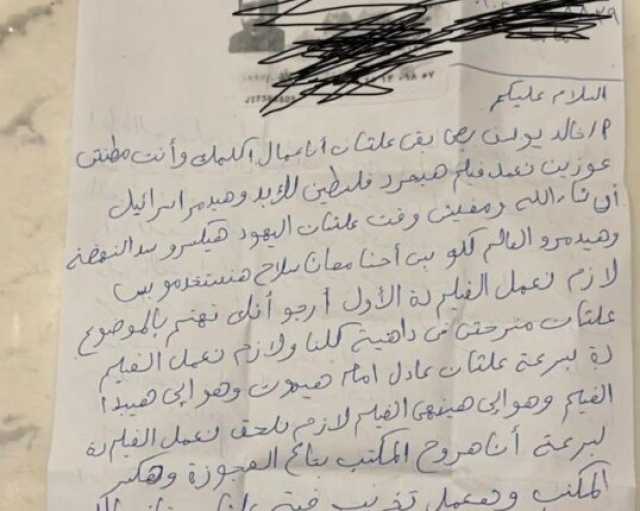 السلام عليكم
م/خالد يوسف بص بقى علشان أنا عمال أكلمك وأنت مطنش
عوزين نعمل فيلم هيحرر فلسطين للأبد وهيدمر اسرائيل
أن شاء الله ومفيش وقت علشان اليهود هيكسرو سد النهضة
وهيدمرو العالم كلو بس أحنا معانا سلاح هنستخدمو بس
لازم نعمل الفيلم دة الأول أرجو أنك تهتم بالموضوع
علشان منرحش فى داهية كلنا ولازم نعمل الفيلم
دة بسرعة علشان عادل امام هيموت وهو إلى هيبدأ
الفيلم وهو إلى هينهى الفيلم لازم نلحق نعمل الفيلم دة
بسرعة أنا هروح المكتب بتاع العجوزة وهكسر
المكتب وهعمل تخريب فيه علشان